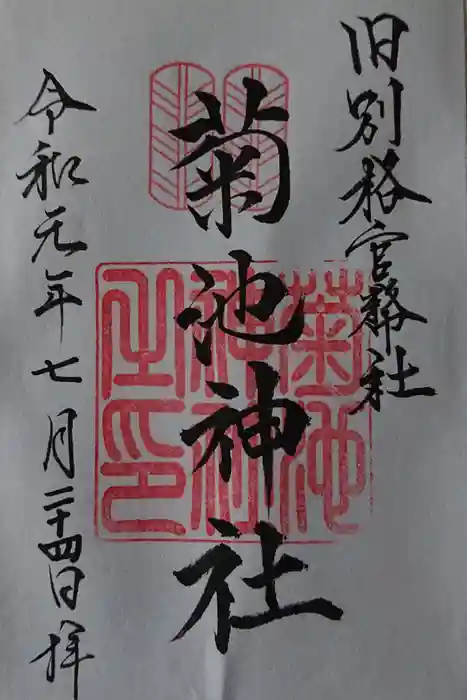 旧別格官幣社
菊池神社
菊池神社之印
令和元年七月二十四日拝